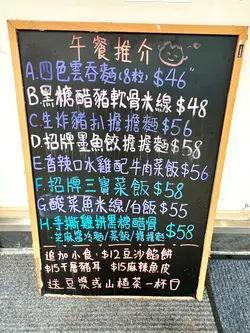 午餐推介
A.四色雲吞麵(8粒)$46
B.黑糖醋豬軟骨米線$48
C.生炸豬扒擔擔麵$56
D.招牌墨魚餃擔擔麵$58
E.香辣口水雞配牛肉菜飯$56
F.招牌三寶菜飯$58
G.酸菜魚米線/白飯$55
H.手撕雞拼黑糖醋骨
-芝麻醬冷麵/菜飯/擔擔麵
$58
追加小食:$12豆沙餡餅
$15千層豬耳 $15麻辣魚皮
送豆漿或山楂茶一杯